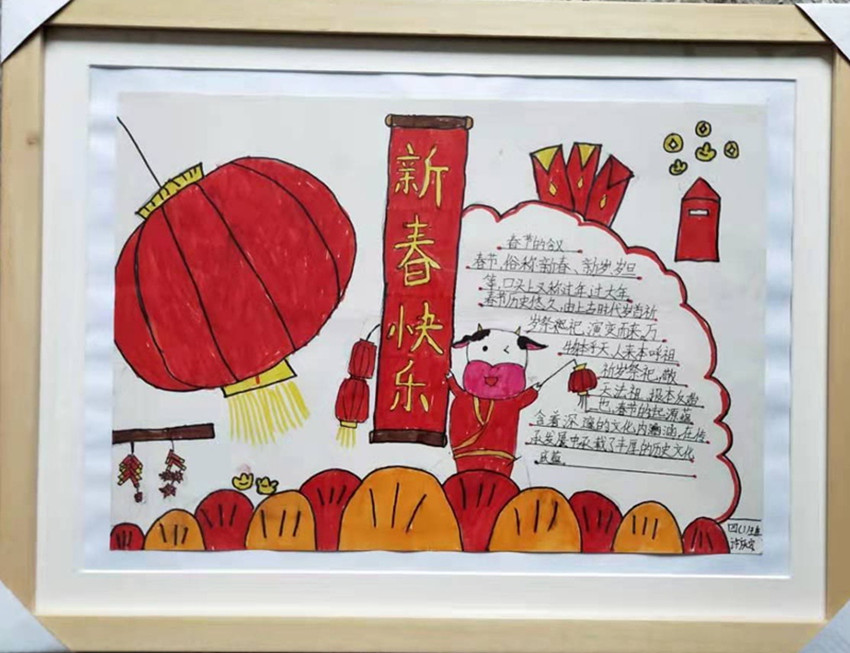 新春快乐
春节的含义
春节,俗称新春、新岁、岁旦
等,口头上又称过年、过大年
春节历史悠久,由上古时代岁首祈
岁祭祀演变而来,万
物本乎天,人来本呼祖
祈岁祭祀、敬
天法祖,报本反始
也,春节的起源蕴
含着深邃的文化内涵,在传
承发展中承载了丰厚的历史文化
底蕴。
四(1)班